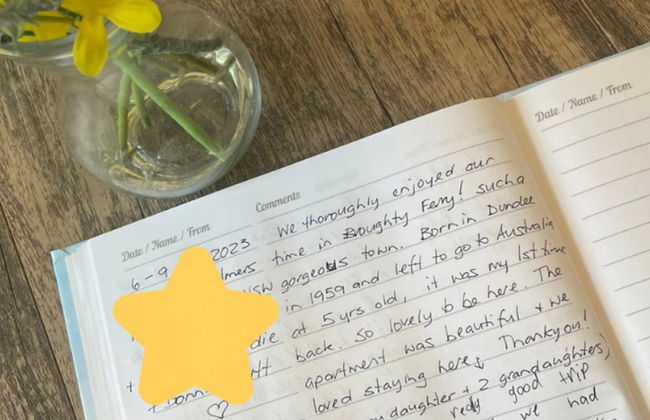 Date / Name / From
Comments
Date / Name / From
6-9 2023 We thoroughly enjoyed our
time in Broughty Ferry! such a
NSW gorgeous town. Born in Dundee
in 1959 and left to go to Australia
die at 5 yrs old, it was my 1st time
back. So lovely to be here. The
apartment was beautiful + we
loved staying here. Thankyou!
daughter + 2 grandaughters)
really good trip
we had